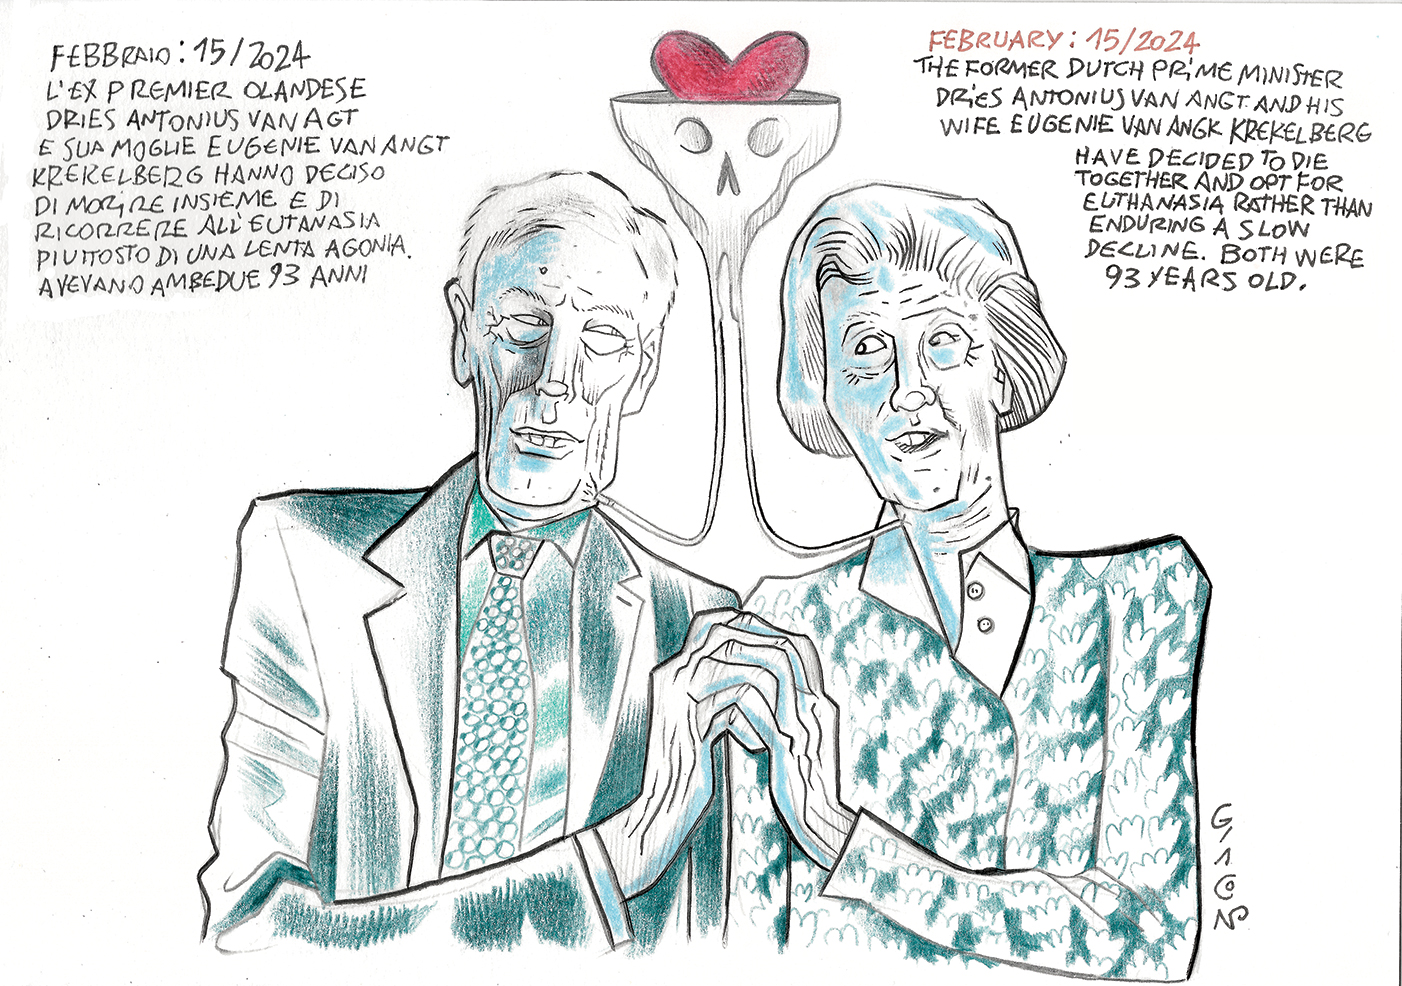 FEBBRAIO: 15/2024
L'EX PREMIER OLANDESE
DRIES ANTONIUS VAN AGT
E SUA MOGLIE EUGENIE VAN ANGT
KREKELBERG HANNO DECISO
DI MORIRE INSIEME E DI
RICORRERE ALL'EUTANASIA
PIUTTOSTO DI UNA LENTA AGONIA.
AVEVANO AMBEDUE 93 ANNI
FEBRUARY: 15/2024
THE FORMER DUTCH PRIME MINISTER
DRIES ANTONIUS VAN ANGT AND HIS
WIFE EUGENIE VAN ANGK KREKELBERG
HAVE DECIDED TO DIE
TOGETHER AND OPT FOR
EUTHANASIA RATHER THAN
ENDURING A SLOW
DECLINE. BOTH WERE
93 YEARS OLD.
GIACON